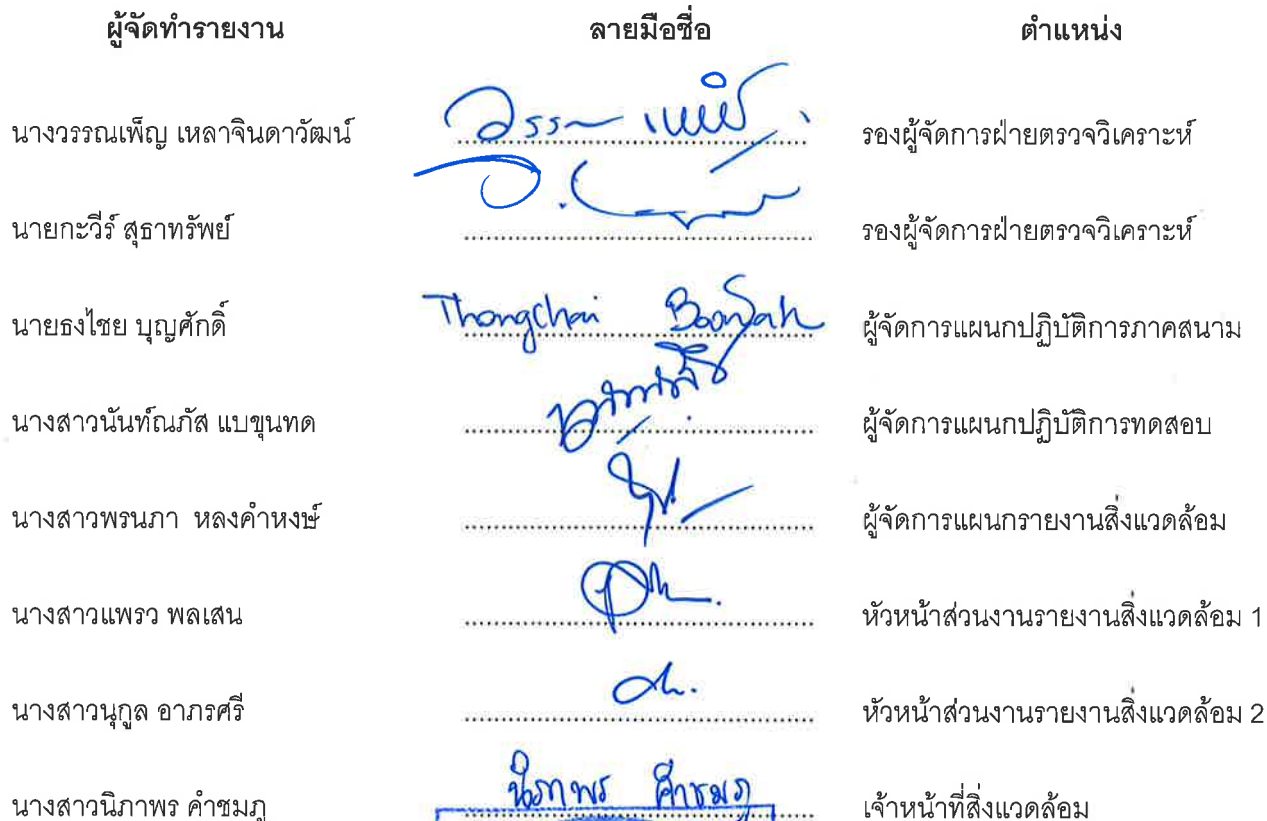 ผู้จัดทำรายงาน ลายมือชื่อ ตำแหน่ง
นางวรรณเพ็ญ เหลาจินดาวัฒน์ วรรณเพ็ญ รองผู้จัดการฝ่ายตรวจวิเคราะห์
นายกะวีร์ สุธาทรัพย์ รองผู้จัดการฝ่ายตรวจวิเคราะห์
นายธงไชย บุญศักดิ์ Thongchai Boonsak ผู้จัดการแผนกปฏิบัติการภาคสนาม
นางสาวนันท์ณภัส แบขุนทด ผู้จัดการแผนกปฏิบัติการทดสอบ
นางสาวพรนภา หลงคำหงษ์ ผู้จัดการแผนกรายงานสิ่งแวดล้อม
นางสาวแพรว พลเสน หัวหน้าส่วนงานรายงานสิ่งแวดล้อม 1
นางสาวนุกูล อาภรศรี หัวหน้าส่วนงานรายงานสิ่งแวดล้อม 2
นางสาวนิภาพร คำชมภู นิภาพร คำชมภู เจ้าหน้าที่สิ่งแวดล้อม